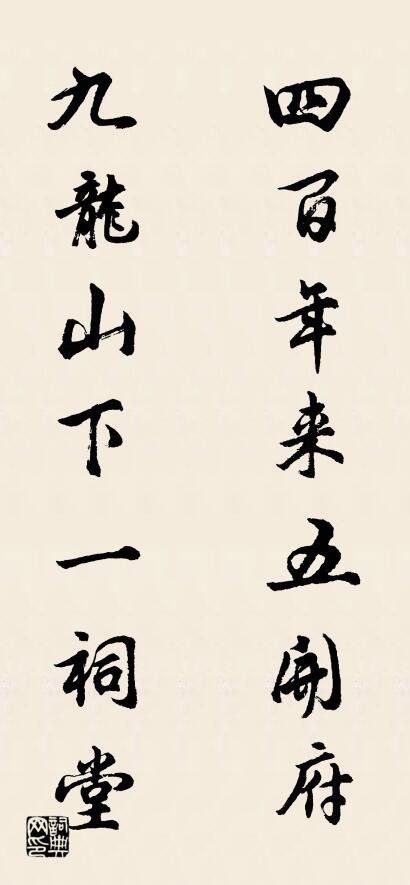 四百年来五開府
九龍山下一祠堂
詞典
网印